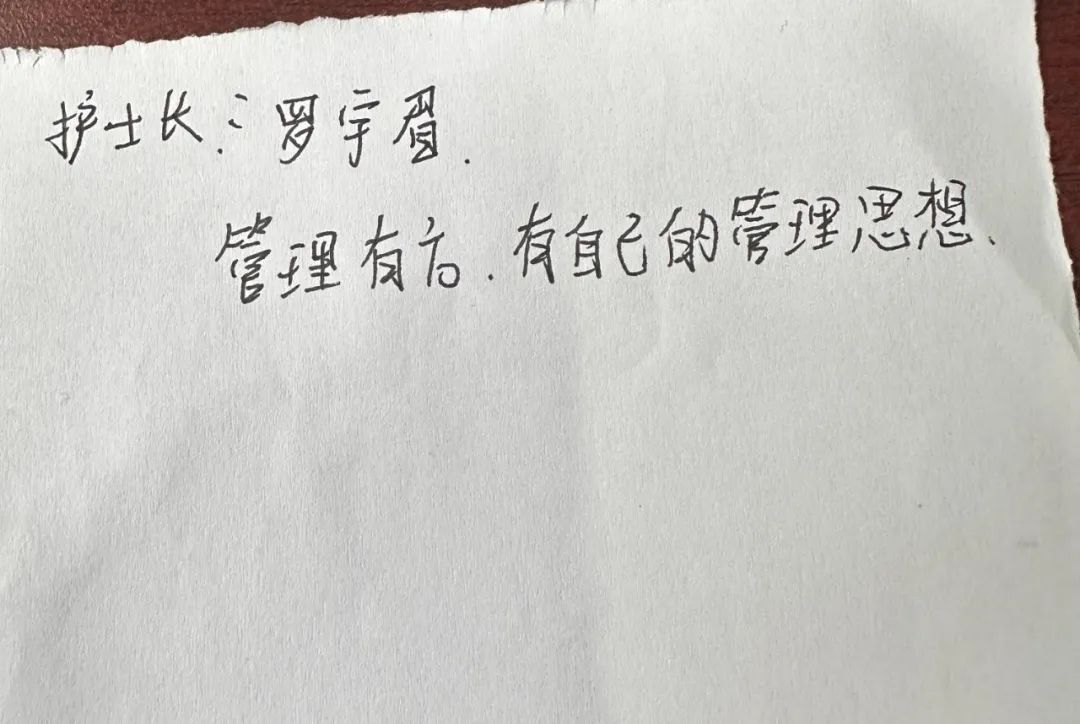 护士长：罗宇眉.
管理有方.有自己的管理思想、